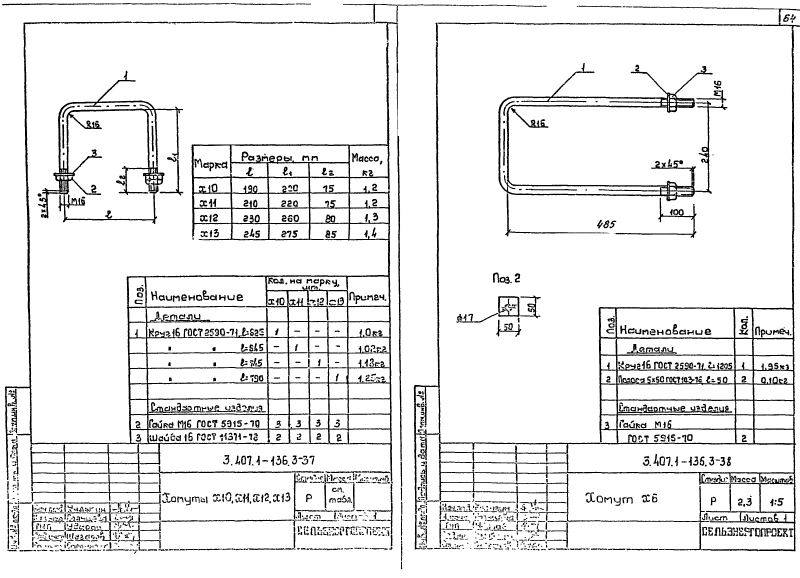 64
1
R16
3
2
2х45°
М16
l
l1
l2
Марка Размеры, мм Масса, кг
l l1 l2
х10 190 220 75 1,2
х11 210 220 75 1,2
х12 230 260 80 1,3
х13 245 275 85 1,4
Поз. Наименование Кол. на марку, шт. Примеч.
х10 х11 х12 х13
Детали
1 Круг 16 ГОСТ 2590-71, l=625 1 – – – 1,0кг
" " l=645 – 1 – – 1,02кг
" " l=745 – – 1 – 1,18кг
" " l=790 – – – 1 1,25кг
Стандартные изделия
2 Гайка М16 ГОСТ 5915-70 3 3 3 3
3 Шайба 16 ГОСТ 11371-78 2 2 2 2
3.407.1-136.3-37
Хомуты х10, х11, х12, х13
Р см. табл.
Лист
1
2
3
М16
R16
2х45°
240
100
485
Поз. 2
ϕ17
50
50
Поз. Наименование Кол. Примеч.
Детали
1 Круг 16 ГОСТ 2590-71, l=1205 1 1,95кг
2 Полоса 5х50 ГОСТ 103-76, l=50 2 0,10кг
Стандартные изделия
3 Гайка М16
ГОСТ 5915-70 2
3.407.1-136.3-38
Хомут х6
Стадия Масса Масштаб
Р 2,3 1:5
Лист Листов 1
СЕЛЬЭНЕРГОПРОЕКТ